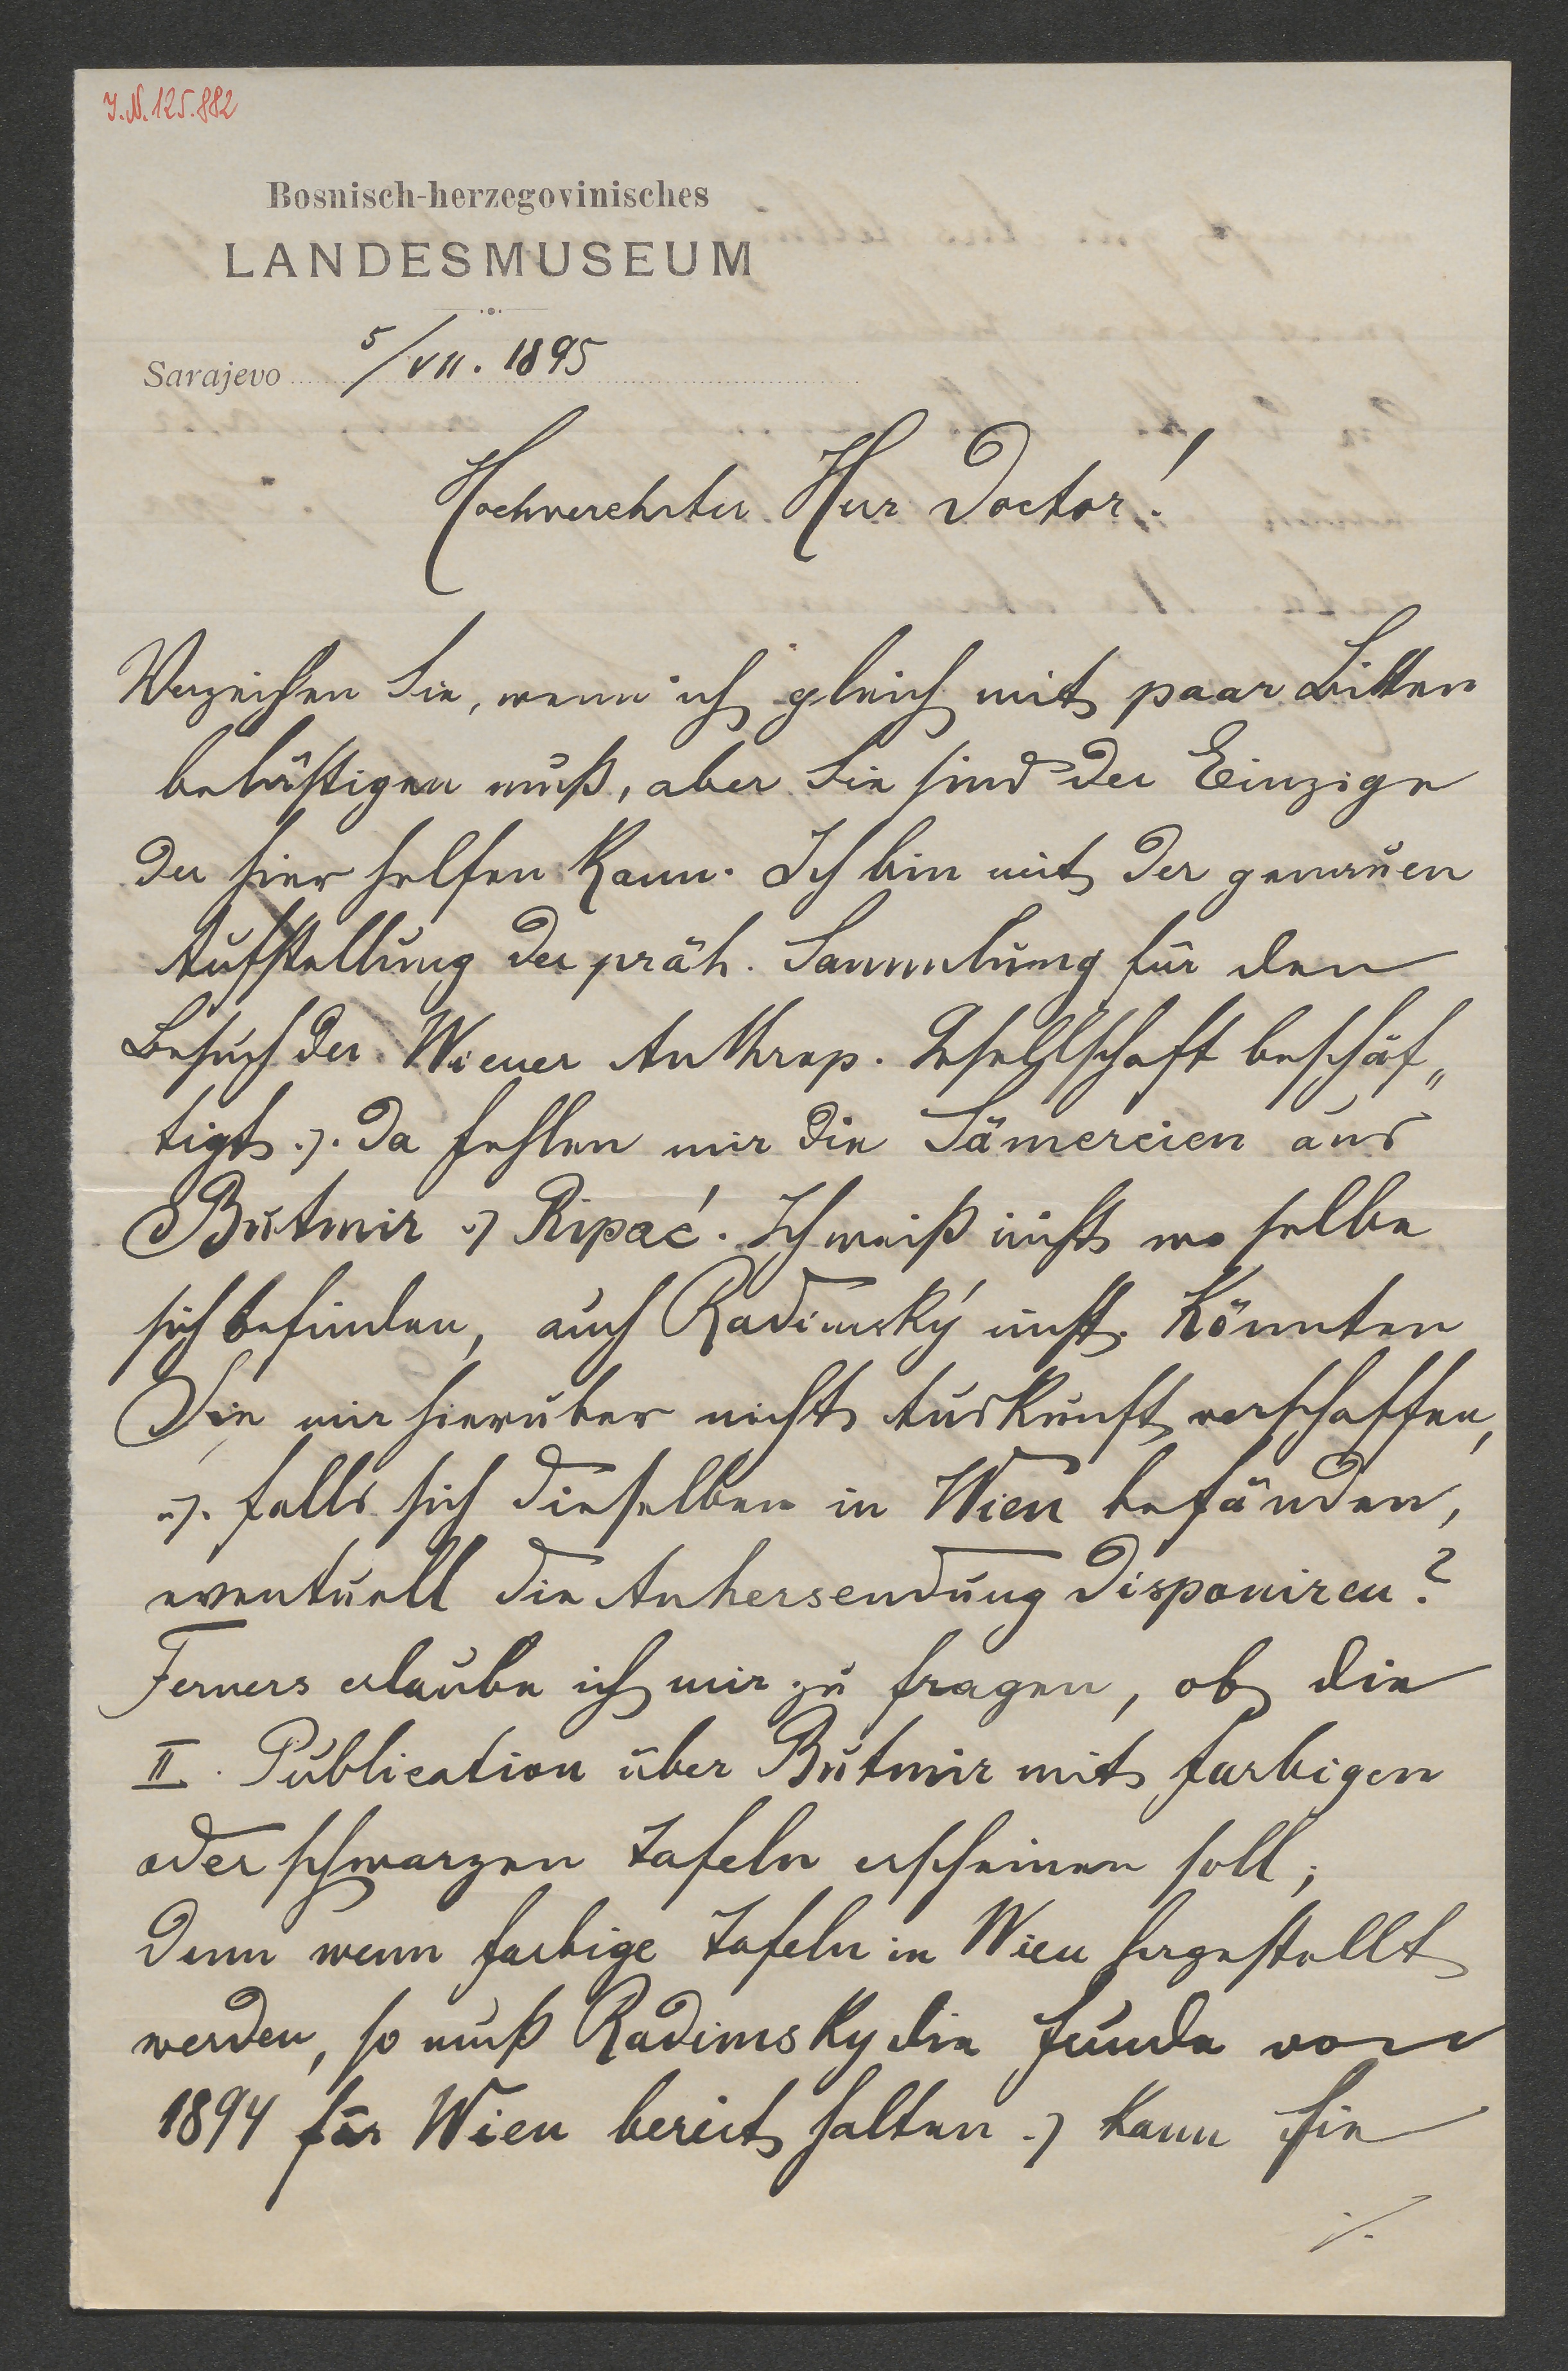 J.N. 125.882
Bosnisch-herzegovinisches
LANDESMUSEUM
Sarajevo 5/VII. 1895
Hochverehrter Herr Doctor!
Verzeihen Sie, wenn ich gleich mit paar Bitten
belästigen muß, aber Sie sind der Einzige
der hier helfen kann. Ich bin mit der genauen
Aufstellung der präh. Sammlung für den
Besuch der Wiener Anthrop. Gesellschaft beschäf„
tigt u. da fehlen mir die Sämereien aus
Butmir u Ripać. Ich weiß nicht wo selbe
sich befinden, auch Radimský nicht. Könnten
Sie mir hierüber nicht Auskunft verschaffen,
u. falls sich dieselben in Wien befänden,
eventuell die Anhersendung disponiren?
Ferners erlaube ich mir zu fragen, ob die
II. Publication über Butmir mit farbigen
oder schwarzen Tafeln erscheinen soll,
denn wenn farbige Tafeln in Wien hergestellt
werden, so muß Radimsky die Funde von
1894 für Wien bereit halten u kann sie
./.